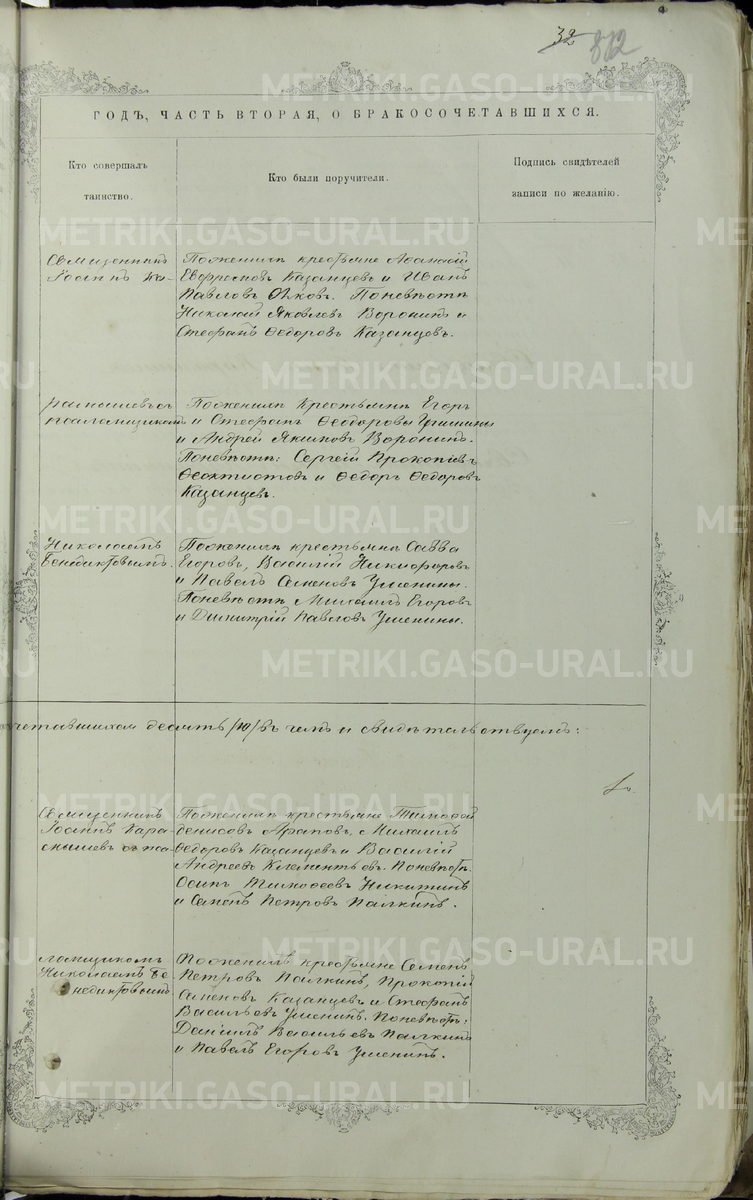 32
812
ГОДЪ, ЧАСТЬ ВТОРАЯ, О БРАКОСОЧЕТАВШИХСЯ.
Кто совершалъ
таинство.
Кто были поручители.
Подпись свидѣтелей
записи по желанію.
METRIKI.GASO-URAL.RU
Священникъ
Іоаннъ Ка-
Поженихѣ крестьяне Афанасій
Евфресповъ Казанцевъ и Иванъ
Павловъ. Поневѣстѣ
Николай Яковлевъ Воронинъ и
Стефанъ Ѳедоровъ Казанцевъ.
рамышевъ съ
псаломщикомъ
Поженихѣ крестьяне Егоръ
и Стефанъ Ѳеодоровы Ушенины
и Андрей Якимовъ Воронинъ.
Поневѣстѣ: Сергѣй Прокопіевъ
Ѳеоктистовъ и Ѳедоръ Ѳедоровъ
Казанцевъ.
Николаемъ
Бенедиктовымъ.
Поженихѣ крестьяне Савва
Егоровъ, Василій Никифоровъ
и Павелъ Семеновъ Ушенины.
Поневѣстѣ Михаилъ Егоровъ
и Димитрій Павловъ Ушенины.
четавшихся десять /10/ Въ чемъ и свидѣтельствуемъ:
Священникъ
Іоаннъ Кара-
мышевъ съ пса-
Поженихѣ крестьяне Тимофей
Денисовъ Араповъ, Михаилъ
Ѳедоровъ Казанцевъ и Василій
Андреевъ Клементьевъ. Поневѣстѣ
Осипъ Тимофеевъ Никитинъ
и Семенъ Петровъ Палкинъ.
ломщикомъ
Николаемъ Бе-
недиктовымъ
Поженихѣ крестьяне Семенъ
Петровъ Палкинъ, Прокопій
Семеновъ Казанцевъ и Стефанъ
Васильевъ Ушенинъ. Поневѣстѣ:
Даніилъ Васильевъ Палкинъ
и Павелъ Егоровъ Ушенинъ.